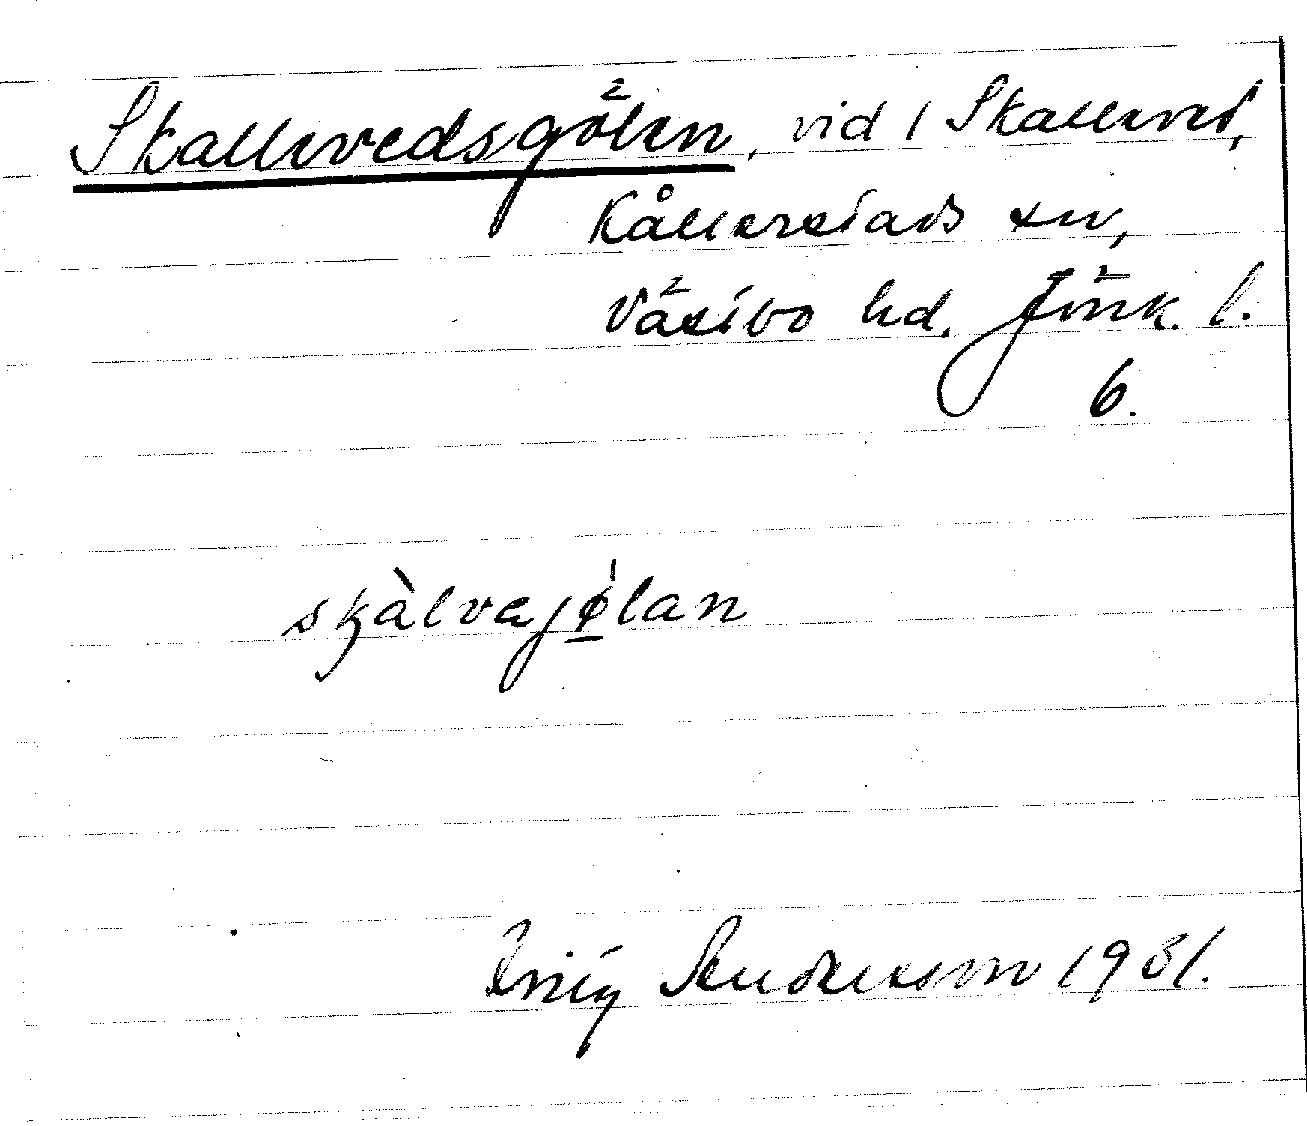 Skallevedsgölen, vid 1 Skalleved,
Kållerstads sn,
Västbo hd. Jönk. l.
6.
skàlvajø̲lan
Andersson 1931.